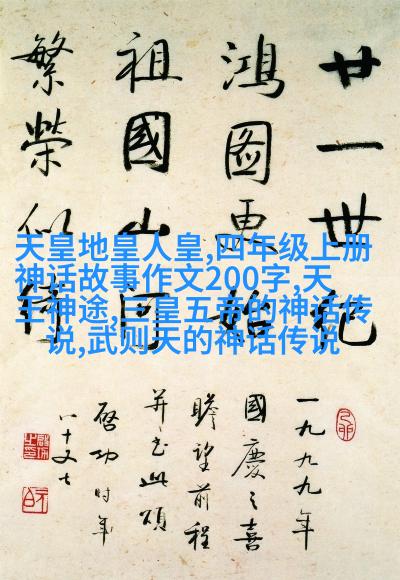 天皇地皇人皇,四年级上册
神话故事作文200字,天
王神途,三皇五帝的神话传
说,武则天的神话传说
廿一世紀
鴻圖更始
祖國山河
繁榮似錦
一九九九年
國慶之喜
瞻望前程
并书此頌
啓功时年
八十又七